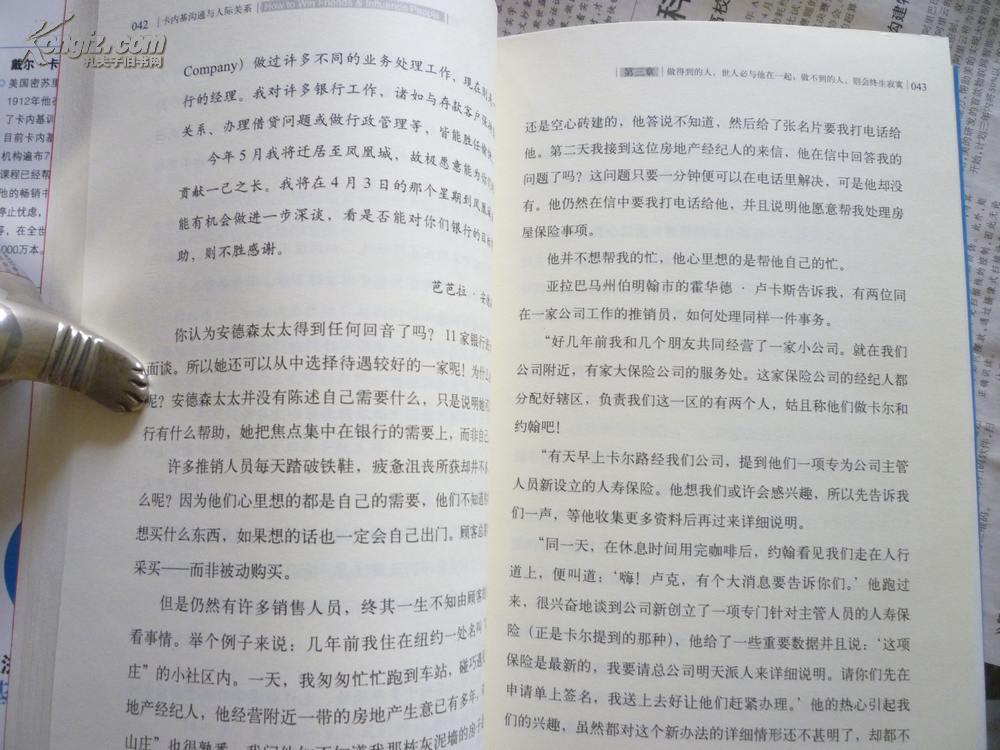 Kongfz.com
孔夫子旧书网
戴尔·卡
美国密苏里
1912年他在
了卡内基训
目前卡内基
机构遍布7
课程已经帮
他的畅销书
停止忧虑，
等，在全世
000万本。
042 卡内基沟通与人际关系 How to Win Friends & Influence People
Company）做过许多不同的业务处理工作，现在则是
行的经理。我对许多银行工作，诸如与存款客户
关系、办理借贷问题或做行政管理等，皆能胜任愉快
今年5月我将迁居至凤凰城，故极愿意能为你们
贡献一己之长。我将在4月3日的那个星期到凤凰城
能有机会做进一步深谈，看是否能对你们银行的目标
助，则不胜感谢。
芭芭拉·安
你认为安德森太太得到任何回音了吗？11家银行
面谈。所以她还可以从中选择待遇较好的一家呢！为什么
呢？安德森太太并没有陈述自己需要什么，只是说明她
行有什么帮助，她把焦点集中在银行的需要上，而非自己
许多推销人员每天踏破铁鞋，疲惫沮丧所获却并不
么呢？因为他们心里想的都是自己的需要，他们不知道
想买什么东西，如果想的话也一定会自己出门。顾客总
采买——而非被动购买。
但是仍然有许多销售人员，终其一生不知由顾客
看事情。举个例子来说：几年前我住在纽约一处名叫
庄”的小社区内。一天，我匆匆忙忙跑到车站，碰巧遇
地产经纪人，他经营附近一带的房地产生意已有多年，
山庄”也很熟悉。我问他知不知道我那栋灰泥墙的房子
第三章 做得到的人，世人必与他在一起；做不到的人，则会终生寂寞 043
还是空心砖建的，他答说不知道，然后给了张名片要我打电话给
他。第二天我接到这位房地产经纪人的来信，他在信中回答我的
问题了吗？这问题只要一分钟便可以在电话里解决，可是他却没
有。他仍然在信中要我打电话给他，并且说明他愿意帮我处理房
屋保险事项。
他并不想帮我的忙，他心里想的是帮他自己的忙。
亚拉巴马州伯明翰市的霍华德·卢卡斯告诉我，有两位同
在一家公司工作的推销员，如何处理同样一件事务。
“好几年前我和几个朋友共同经营了一家小公司。就在我们
公司附近，有家大保险公司的服务处。这家保险公司的经纪人都
分配好辖区，负责我们这一区的有两个人，姑且称他们做卡尔和
约翰吧！
“有天早上卡尔路经我们公司，提到他们一项专为公司主管
人员新设立的人寿保险。他想我们或许会感兴趣，所以先告诉我
们一声，等他收集更多资料后再过来详细说明。
“同一天，在休息时间用完咖啡后，约翰看见我们走在人行
道上，便叫道：‘嗨！卢克，有个大消息要告诉你们。’他跑过
来，很兴奋地谈到公司新创立了一项专门针对主管人员的人寿保
险（正是卡尔提到的那种），他给了一些重要数据并且说：‘这项
保险是最新的，我要请总公司明天派人来详细说明。请你们先在
申请单上签名，我送上去好让他们赶紧办理。’他的热心引起我
们的兴趣，虽然都对这个新办法的详细情形还不甚明了，却都不